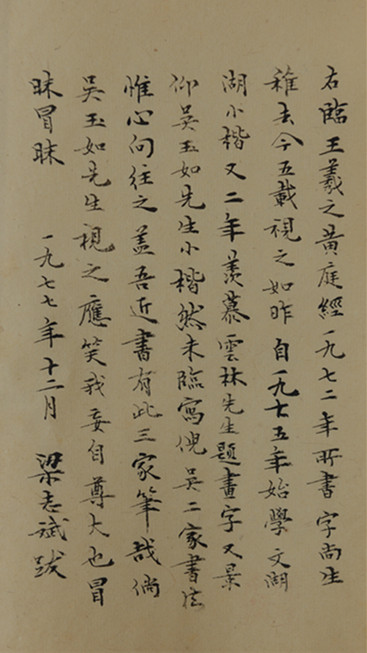 右臨王羲之黄庭經一九七二年所書字尚生
稚去今五載視之如昨自一九七五年始學文湖
湖小楷又二年羡慕雲林先生題畫字又景
仰吳玉如先生小楷然未臨寫倪吳二家書法
惟心向往之蓋吾近書有此三家筆哉倘
吳玉如先生視之應笑我妄自尊大也冒
昧冒昧 一九七七年十二月 梁志斌跋